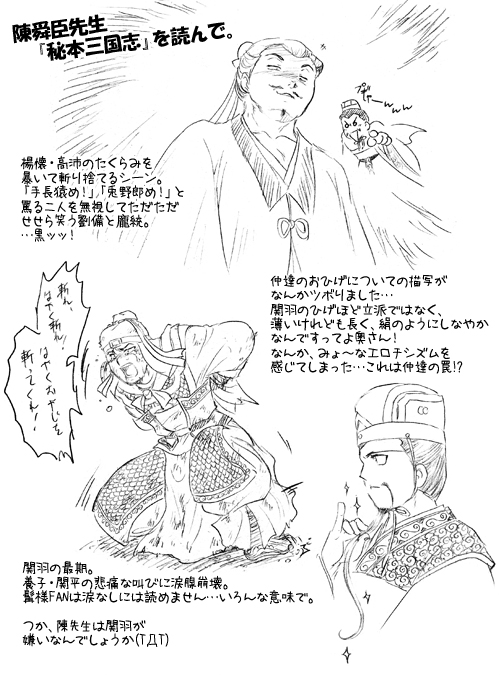 陳舜臣先生
『秘本三国志』を読んで。
楊懐・高沛のたくらみを
暴いて斬り捨てるシーン。
『手長猿め！』『兎野郎め！』と
罵る二人を無視してただただ
せせら笑う劉備と龐統。
…黒ッッ！
仲達のおひげについての描写が
なんかツボりました…
関羽のひげほど立派ではなく、
薄いけれども長く、絹のようにしなやか
なんですってよ奥さん！
なんか、みょ～なエロチシズムを
感じてしまった…これは仲達の罠!?
斬れ、
はやく斬れ！
はやくおやじを
斬ってくれ！
関羽の最期。
養子・関平の悲痛な叫びに涙腺崩壊。
髯様FANは涙なしには読めません…いろんな意味で。
つか、陳先生は関羽が
嫌いなんでしょうか(TДT)